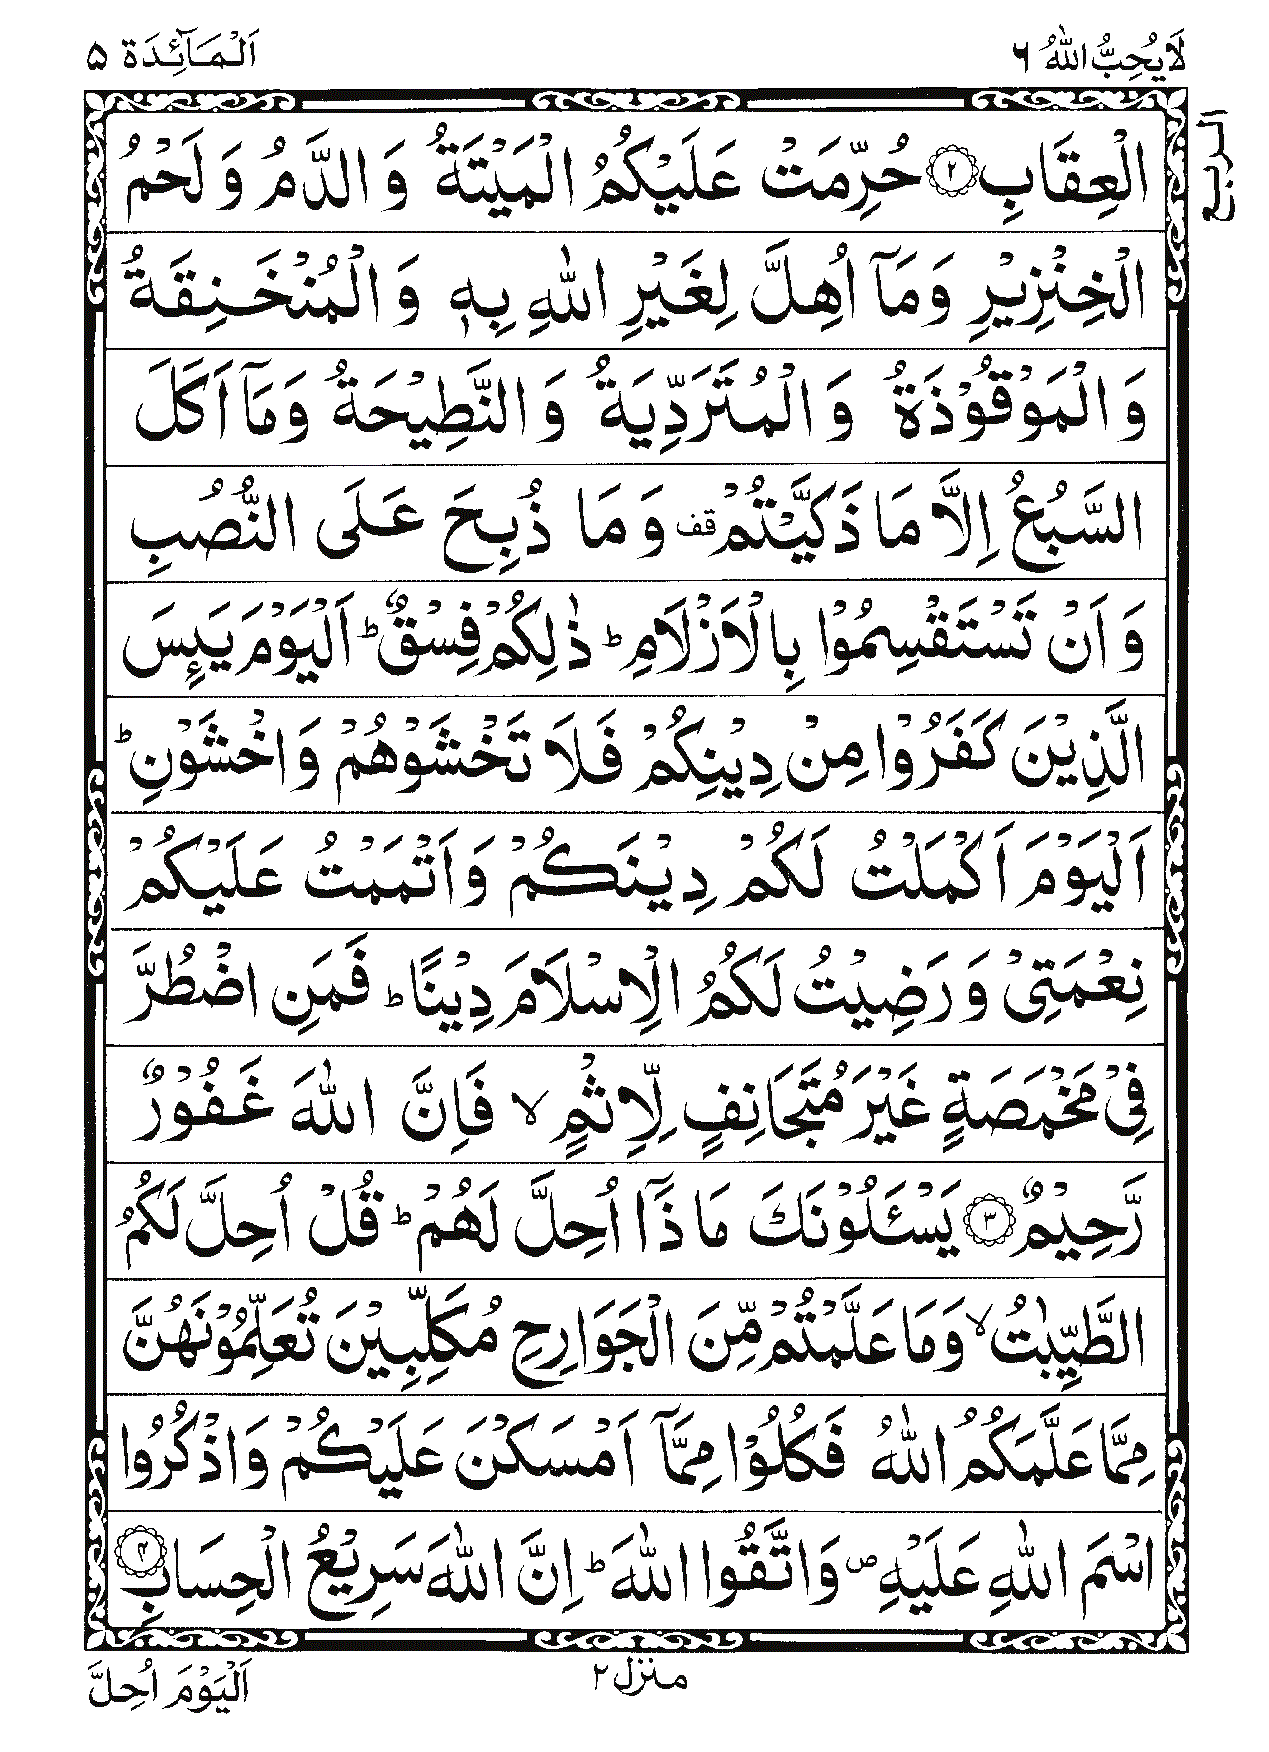 لَا یُحِبُّ اللّٰهُ ٦
اَلْمَآئِدَة ۵
الربع
الْعِقَابِ ﴿۲﴾ حُرِّمَتْ عَلَیْكُمُ الْمَیْتَةُ وَ الدَّمُ وَ لَحْمُ
الْخِنْزِیْرِ وَ مَاۤ اُهِلَّ لِغَیْرِ اللّٰهِ بِهٖ وَ الْمُنْخَنِقَةُ
وَ الْمَوْقُوْذَةُ وَ الْمُتَرَدِّیَةُ وَ النَّطِیْحَةُ وَ مَاۤ اَكَلَ
السَّبُعُ اِلَّا مَا ذَكَّیْتُمْ قف وَ مَا ذُبِحَ عَلَی النُّصُبِ
وَ اَنْ تَسْتَقْسِمُوْا بِالْاَزْلَامِؕ ذٰلِكُمْ فِسْقٌؕ اَلْیَوْمَ یَىِٕسَ
الَّذِیْنَ كَفَرُوْا مِنْ دِیْنِكُمْ فَلَا تَخْشَوْهُمْ وَ اخْشَوْنِؕ
اَلْیَوْمَ اَكْمَلْتُ لَكُمْ دِیْنَكُمْ وَ اَتْمَمْتُ عَلَیْكُمْ
نِعْمَتِیْ وَ رَضِیْتُ لَكُمُ الْاِسْلَامَ دِیْنًاؕ فَمَنِ اضْطُرَّ
فِیْ مَخْمَصَةٍ غَیْرَ مُتَجَانِفٍ لِّاِثْمٍۙ فَاِنَّ اللّٰهَ غَفُوْرٌ
رَّحِیْمٌ ﴿۳﴾ یَسْـَٔلُوْنَكَ مَا ذَاۤ اُحِلَّ لَهُمْؕ قُلْ اُحِلَّ لَكُمُ
الطَّیِّبٰتُۙ وَ مَا عَلَّمْتُمْ مِّنَ الْجَوَارِحِ مُكَلِّبِیْنَ تُعَلِّمُوْنَهُنَّ
مِمَّا عَلَّمَكُمُ اللّٰهُ فَكُلُوْا مِمَّاۤ اَمْسَكْنَ عَلَیْكُمْ وَ اذْكُرُوا
اسْمَ اللّٰهِ عَلَیْهِ۪ وَ اتَّقُوا اللّٰهَؕ اِنَّ اللّٰهَ سَرِیْعُ الْحِسَابِ ﴿۴﴾
منزل ۲
اَلْیَوْمَ اُحِلَّ